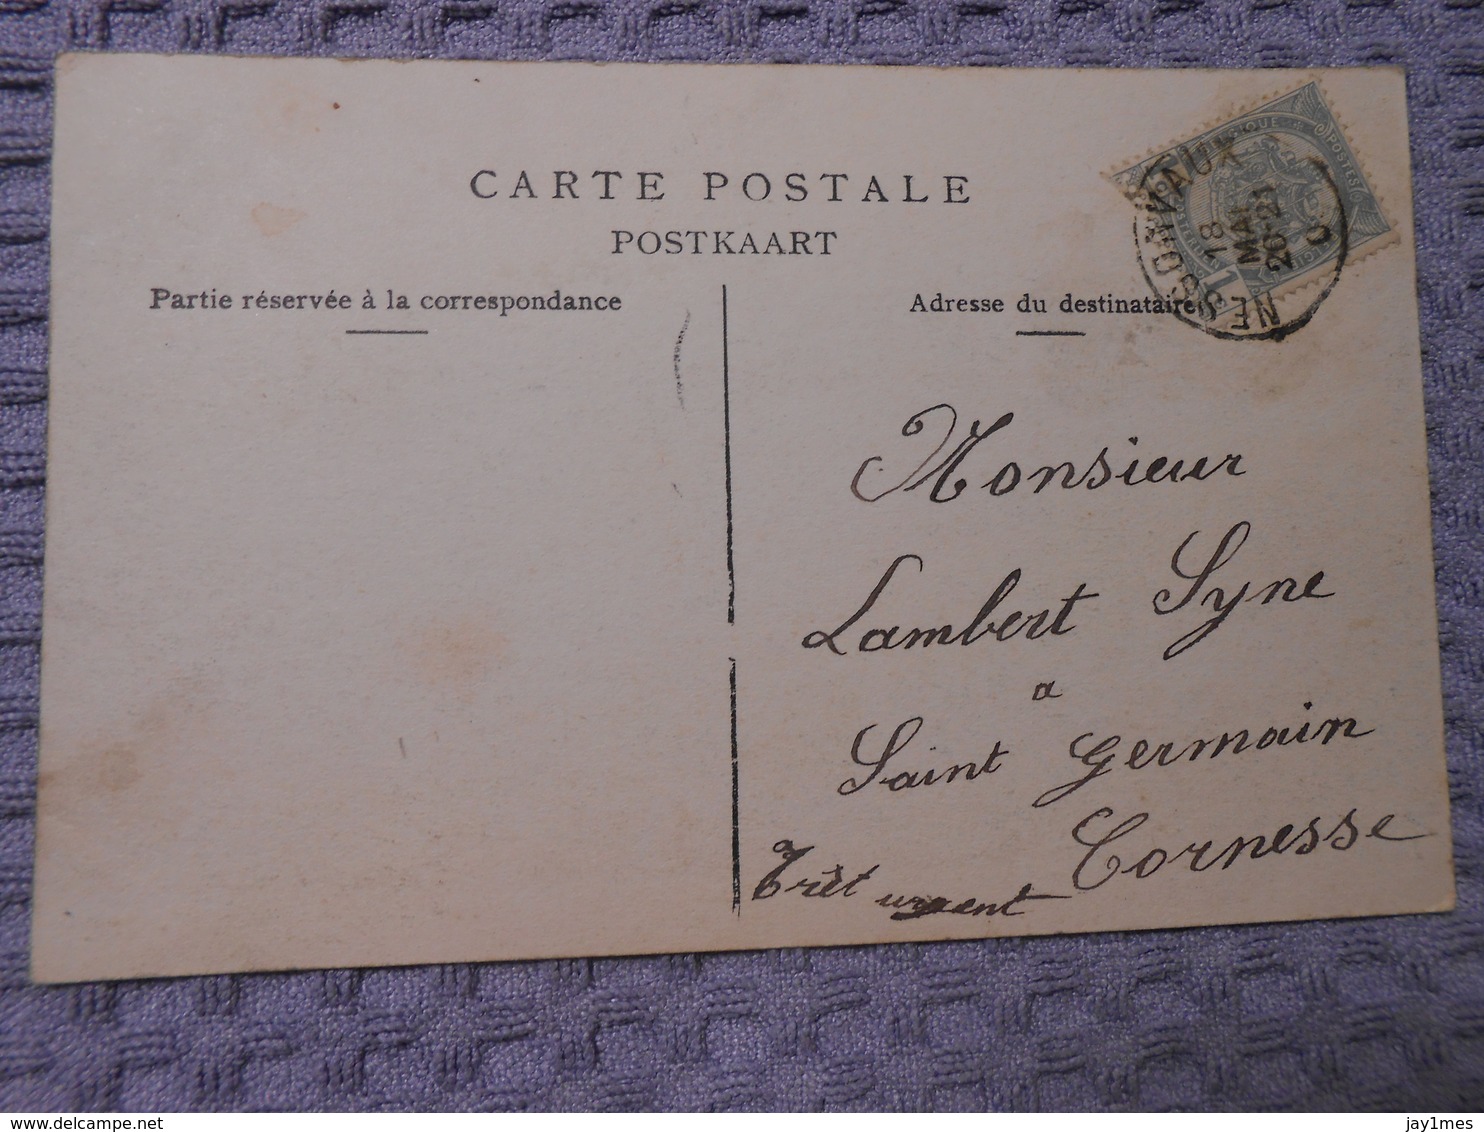 CARTE POSTALE
POSTKAART
Partie réservée à la correspondance
Adresse du destinataire
NESSONVAUX
18
MAI
20-21
Monsieur
Lambert Syne
a
Saint Germain
Cornesse
Trèt urgent
delcampe.net
jay1mes